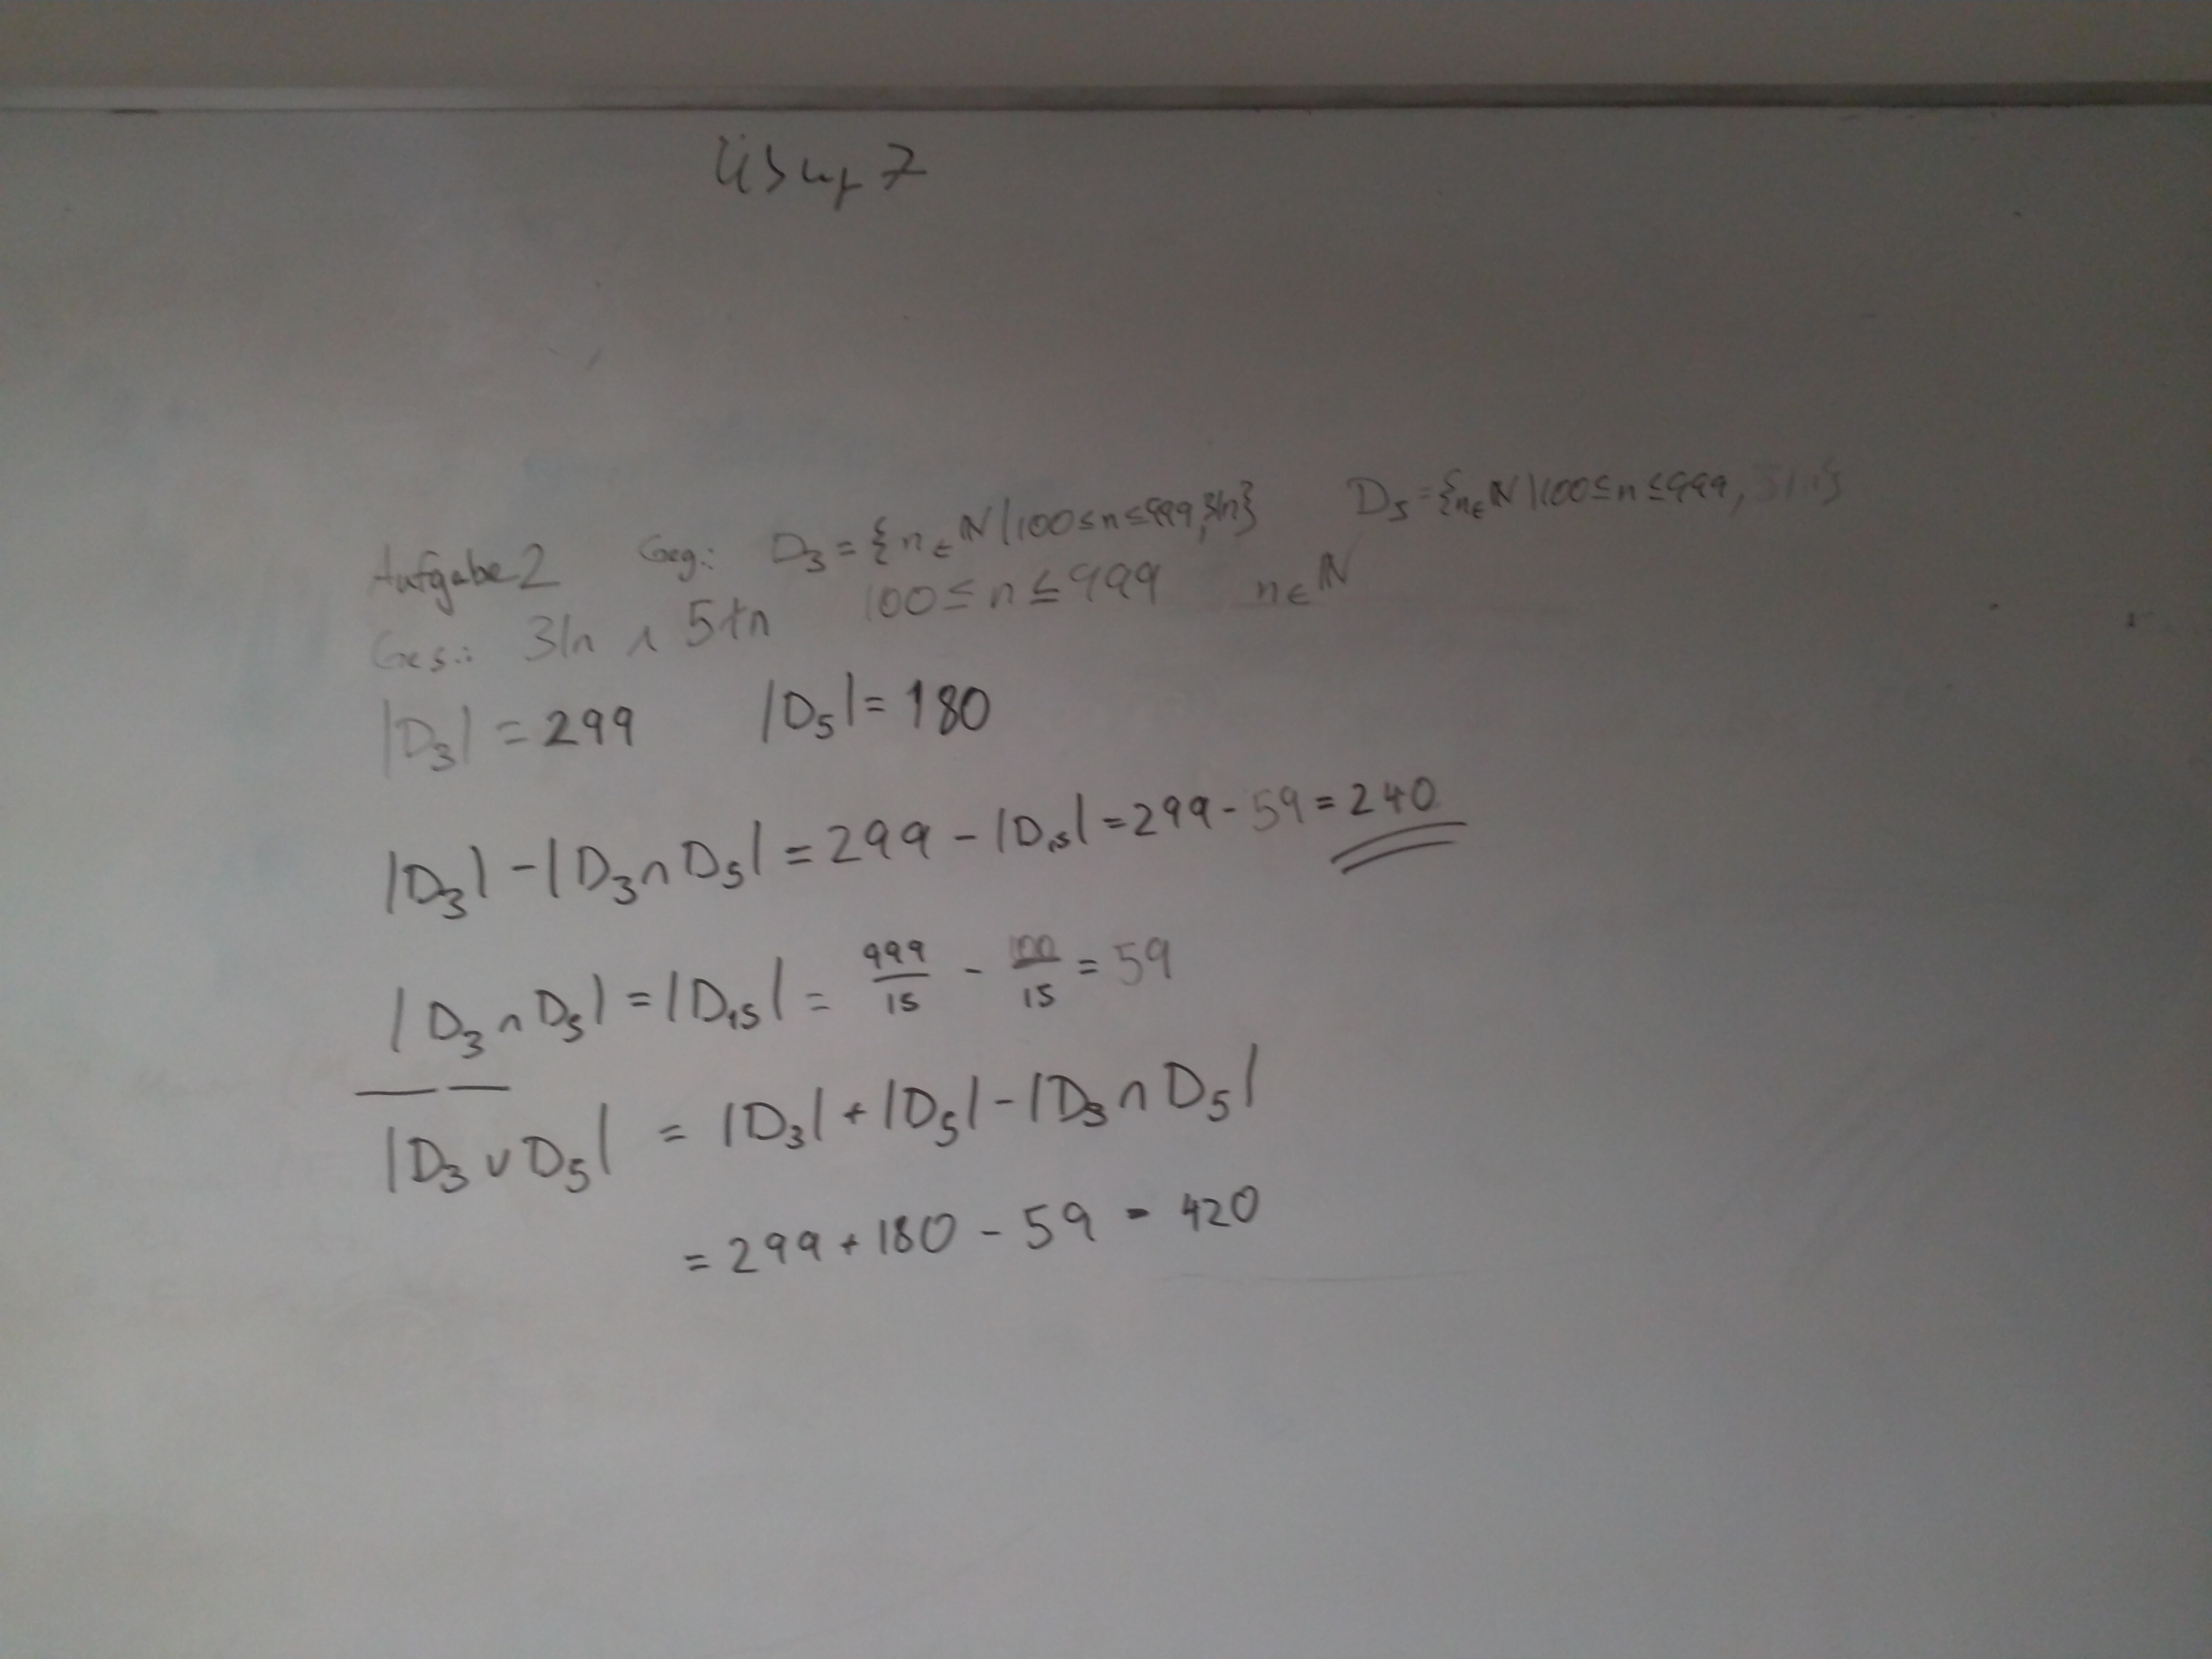 Übung 7
Aufgabe 2 Geg.: D₃ = {n ∈ ℕ | 100 ≤ n ≤ 999, 3|n} D₅ = {n ∈ ℕ | 100 ≤ n ≤ 999, 5|n}
Ges.: 3|n ∧ 5∤n 100 ≤ n ≤ 999 n ∈ ℕ
|D₃| = 299 |D₅| = 180
|D₃| - |D₃ ∩ D₅| = 299 - |D₁₅| = 299 - 59 = 240
|D₃ ∩ D₅| = |D₁₅| = 999/15 - 100/15 = 59
|D₃ ∪ D₅| = |D₃| + |D₅| - |D₃ ∩ D₅|
= 299 + 180 - 59 = 420